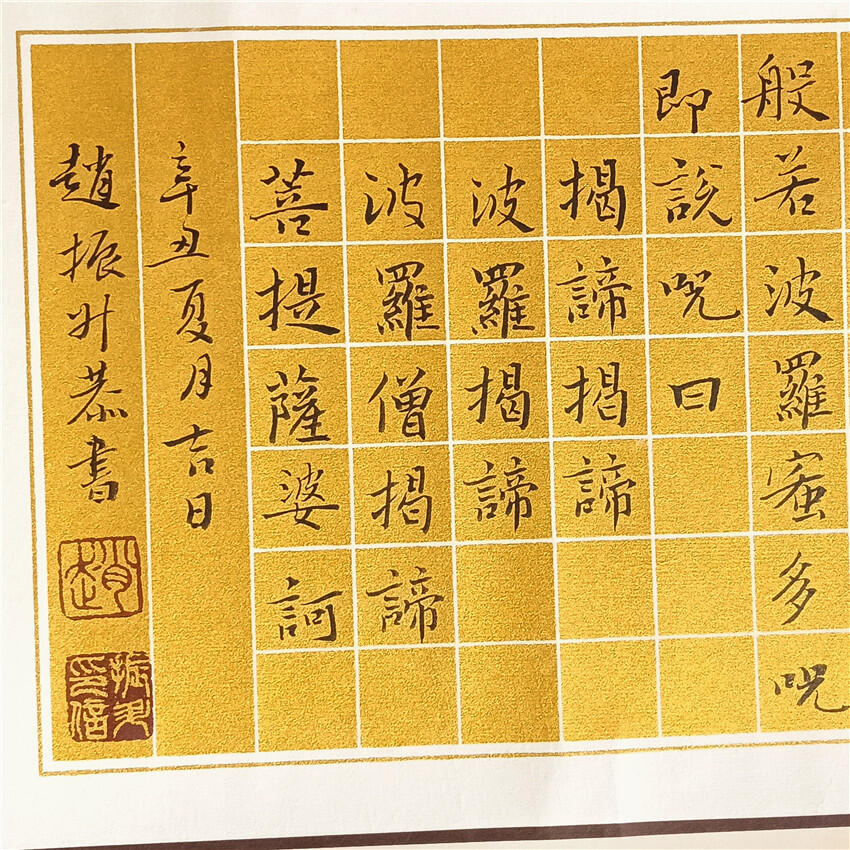 般若波羅蜜多呪
即說呪曰
揭諦揭諦
波羅揭諦
波羅僧揭諦
菩提薩婆訶
辛丑夏月吉日
趙振恭書
趙
振印信